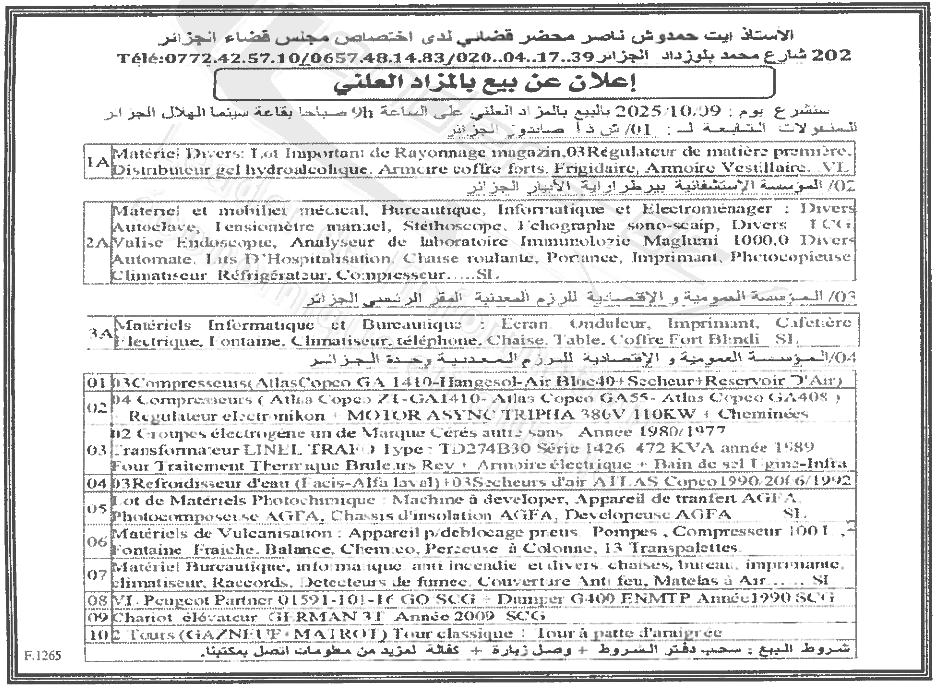 الأستاذ ايت حمدوش ناصر محضر قضائي لدى اختصاص مجلس قضاء الجزائر
202 شارع محمد بلوزداد الجزائر Télé:0772.42.57.10/0657.48.14.83/020..04..17..39
إعلان عن بيع بالمزاد العلني
سنشرع يوم : 2025/10/09 بالبيع بالمزاد العلني على الساعة 9h صباحا بقاعة سينما الهلال الجزائر
للمنقولات التابعة لـ : 01/ ش ذ أ صاندوز الجزائر
1A Matériel Divers: Lot Important de Rayonnage magazin,03Régulateur de matière première,
Distributeur gel hydroalcolique, Armoire coffre forts, Frigidaire, Armoire Vestillaire. VL
02/ المؤسسة الإستشفائية بيرطرارية الأبيار الجزائر
Materiel et mobilier médical, Bureautique, Informatique et Electroménager : Divers
Autoclave, Tensiomètre manuel, Stéthoscope, Echographe sono-scaip, Divers ECG
2A Valise Endoscopie, Analyseur de laboratoire Immunologie Maglumi 1000.0 Divers
Automate, Lits D'Hospitalisation, Chaise roulante, Portance, Imprimant, Photocopieuse
Climatiseur Réfrigérateur, Compresseur.....SL
03/ المؤسسة العمومية و الإقتصادية للرزم المعدنية المقر الرئيسي الجزائر
3A Matériels Informatique et Bureautique : Ecran, Onduleur, Imprimant, Cafetière
Electrique, Fontaine, Climatiseur, téléphone, Chaise, Table, Coffre Fort Blindi SL
04/ المؤسسة العمومية و الإقتصادية للرزم المعدنية وحدة الجزائر
01 03Compresseurs(AtlasCopco GA 1410-Hangesol-Air Bloc40+Secheur+Reservoir D'Air)
02 04 Compresseurs ( Atlas Copco Z1-GA1410- Atlas Copco GA55- Atlas Copco GA408 )
Regulateur electronikon + MOTOR ASYNC TRIPHA 380V 110KW + Cheminées
02 Groupes électrogène un de Marque Cérés autre sans Année 1980/1977
03 Transformateur LINEL TRAFO Type : TD274B30 Série 1426 472 KVA année 1989
Four Traitement Thermique Bruleurs Rev + Armoire électrique + Bain de sel Ugine-Infra
04 03Refroidisseur d'eau (Facis-Alfa laval)+03Secheurs d'air ATLAS Copco1990/2006/1992
05 Lot de Matériels Photochimique : Machine à developer, Appareil de tranfert AGFA,
Photocomposeuse AGFA, Chassis d'insolation AGFA, Developeuse AGFA SL
06 Matériels de Vulcanisation : Appareil p/deblocage pneus Pompes , Compresseur 100 L
Fontaine Fraiche, Balance, Chemco, Perzeuse à Colonne, 13 Transpalettes.
07 Matériel Bureautique, informatique anti incendie et divers chaises, bureau, imprimante,
climatiseur, Raccords, Detecteurs de fumee, Couverture Anti feu, Matelas à Air...... SL
08 VL Peugeot Partner 01591-101-16 GO SCG + Dumper G400 ENMTP Année1990 SCG
09 Chariot élévateur GERMAN 3T Année 2009 SCG
10 2 Tours (GAZNEUF+MAIROT) Tour classique : Tour à patte d'araignée
شروط البيع : سحب دفتر الشروط + وصل زيارة + كفالة لمزيد من معلومات اتصل بمكتبنا.
F.1265